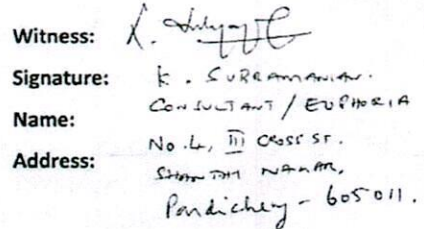 Witness:
Signature: K. SUBRAMANIAN.
CONSULTANT / EUPHORIA
Name:
No.4, III CROSS ST.
Address: SHANTHI NAGAR,
Pondicherry - 605 011.